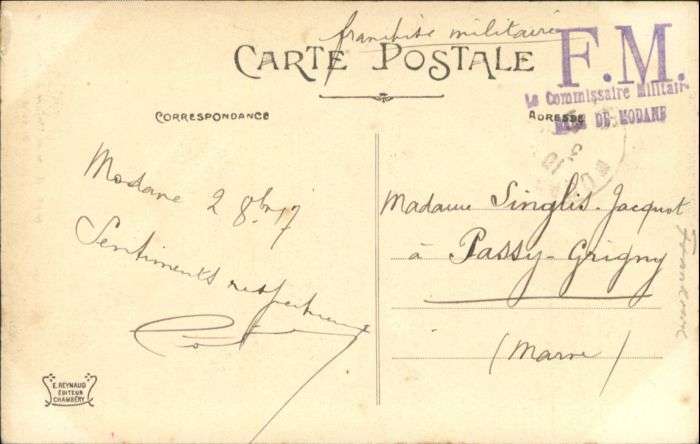 franchise militaire
CARTE POSTALE
F.M.
Le Commissaire Militair
DE MODANE
CORRESPONDANCE
ADRESSE
Modane 2 8bre 17
Sentiments respectueux
Madame Singlis-Jacquot
à Passy-Grigny
(Marne)
E. REYNAUD
ÉDITEUR
CHAMBÉRY